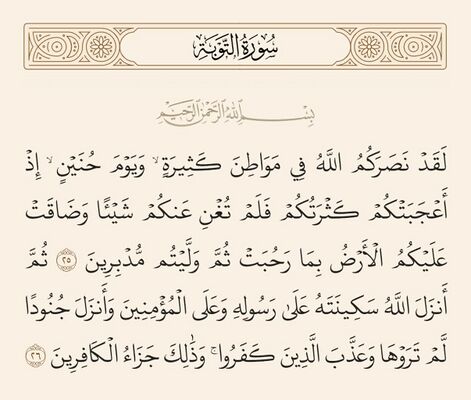 سُورَةُ التَّوْبَةِ
بِسْمِ اللَّهِ الرَّحْمَٰنِ الرَّحِيمِ
لَقَدْ نَصَرَكُمُ اللَّهُ فِي مَوَاطِنَ كَثِيرَةٍ ۙ وَيَوْمَ حُنَيْنٍ ۙ إِذْ
أَعْجَبَتْكُمْ كَثْرَتُكُمْ فَلَمْ تُغْنِ عَنكُمْ شَيْئًا وَضَاقَتْ
عَلَيْكُمُ الْأَرْضُ بِمَا رَحُبَتْ ثُمَّ وَلَّيْتُم مُّدْبِرِينَ ٢٥ ثُمَّ
أَنزَلَ اللَّهُ سَكِينَتَهُ عَلَىٰ رَسُولِهِ وَعَلَى الْمُؤْمِنِينَ وَأَنزَلَ جُنُودًا
لَّمْ تَرَوْهَا وَعَذَّبَ الَّذِينَ كَفَرُوا ۚ وَذَٰلِكَ جَزَاءُ الْكَافِرِينَ ٢٦